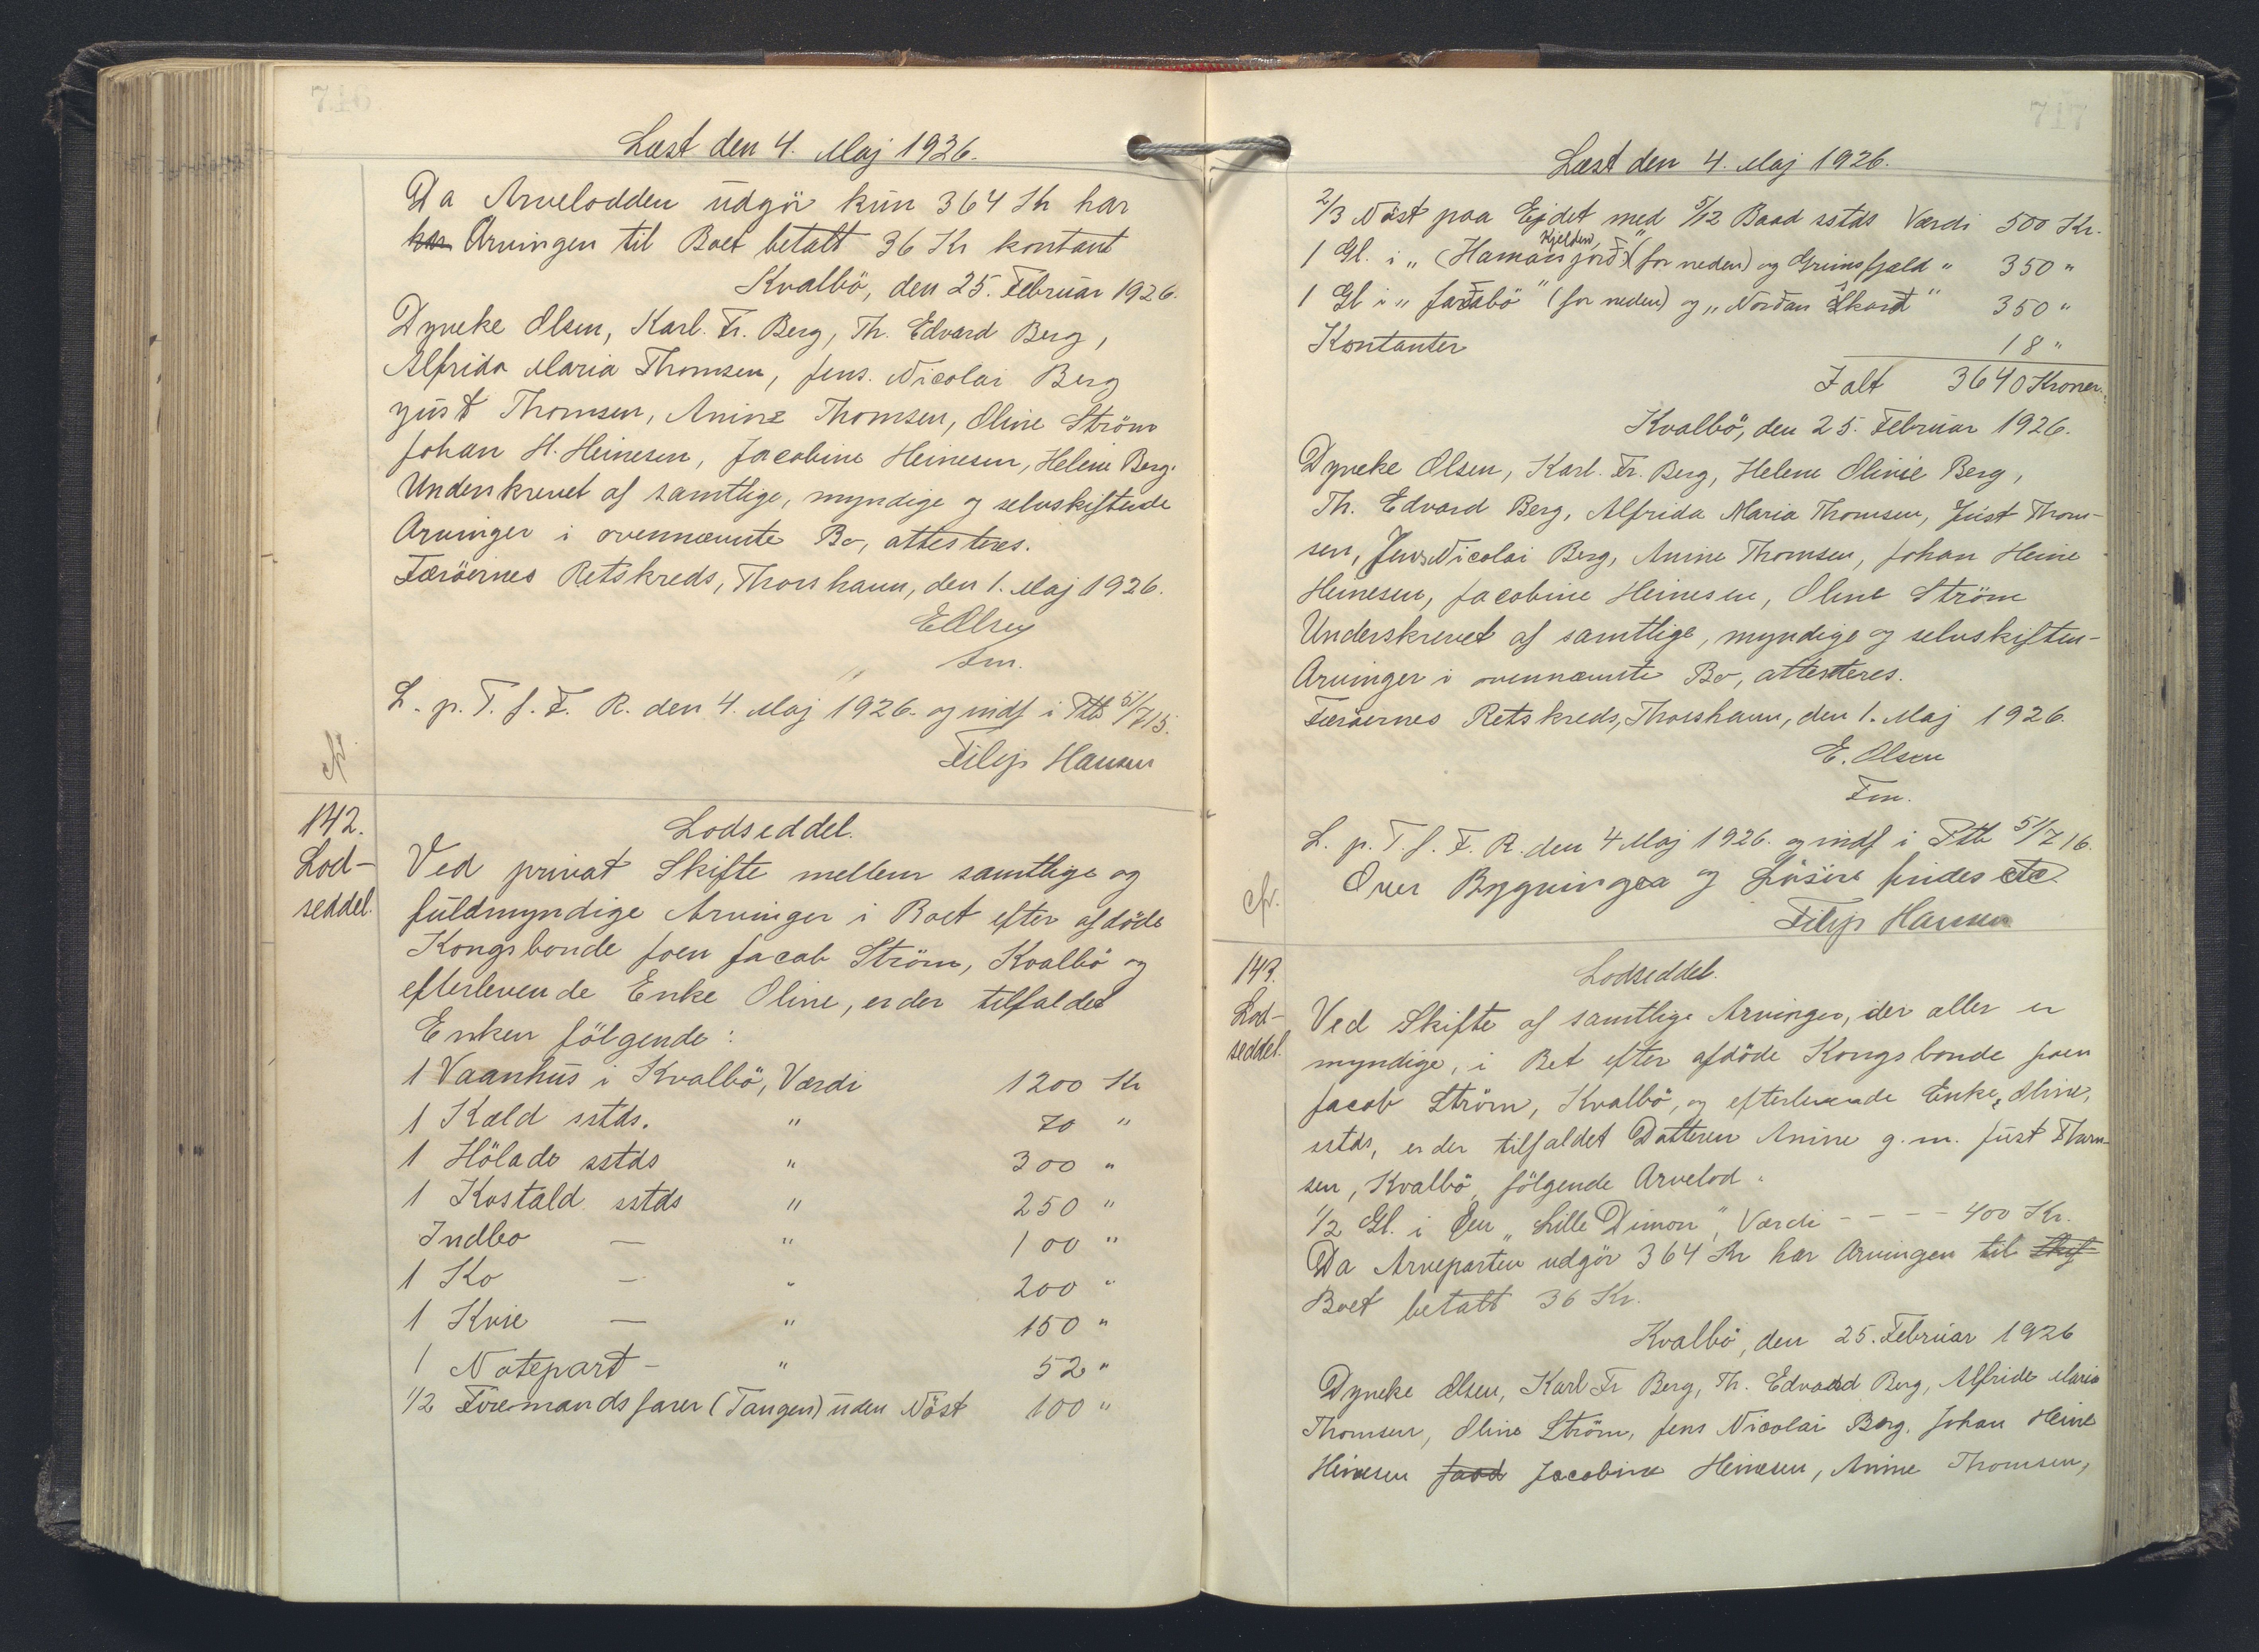 716
Læst den 4. Maj 1926.
Da Arvelodden udgör kun 364 Kr har
har Arvingen til Boet betalt 36 Kr kontant
Kvalbö, den 25. Februar 1926.
Dyveke Olsen, Karl. Fr. Berg, Th. Edvard Berg,
Alfrida Maria Thomsen, Jens. Nicolai Berg
Just Thomsen, Anine Thomsen, Oline Ström
Johan H. Heinesen, Jacobine Heinesen, Helene Berg.
Underskrevet af samtlige, myndige og selvskiftende
Arvinger i ovennævnte Bo, attesteres.
Færöernes Retskreds, Thorshavn, den 1. Maj 1926.
E Olsen
Fm.
L. p. T. f. F. R. den 4. Maj 1926. og indf i Ptb 5/715.
Filip Hansen
cfr.
142.
Lod-
seddel.
Lodseddel.
Ved privat Skifte mellem samtlige og
fuldmyndige Arvinger i Boet efter afdöde
Kongsbonde Joen Jacob Ström, Kvalbö og
efterlevende Enke Oline, er der tilfaldet
Enken fölgende:
1 Vaanhus i Kvalbö, Værdi 1200 Kr
1 Kæld sstds. " 70 "
1 Hölade sstds " 300 "
1 Kostald sstds " 250 "
Indbo — " 100 "
1 Ko — " 200 "
1 Kvie — " 150 "
1 Notepart - " 52 "
1/2 Firemandsfarer (Tangen) uden Nöst 100 "
717
Læst den 4. Maj 1926.
2/3 Nöst paa Ejdet med 5/12 Baad sstds Værdi 500 Kr.
Kjelden,
1 Gl. i „ (Hamarsjorð" (for neden) og Grimsfjæld " 350 "
1 Gl i „ Jarðabö" (for neden) og „Norðan Skarð" 350 "
Kontanter 18 "
Ialt 3640 Kroner.
Kvalbö, den 25. Februar 1926.
Dyveke Olsen, Karl. Fr. Berg, Helene Olivie Berg,
Th. Edvard Berg, Alfrida Maria Thomsen, Just Thom-
sen, Jens Nicolai Berg, Anine Thomsen, Johan Heine
Heinesen, Jacobine Heinesen, Oline Ström
Underskrevet af samtlige, myndige og selvskiften-
Arvinger i ovennævnte Bo, attesteres.
Færöernes Retskreds, Thorshavn, den 1. Maj 1926.
E. Olsen
Fm.
L. p. T. f. F. R. den 4 Maj 1926. og indf i Ptb 5/716.
Over Bygningea og Lösöre findes etc.
cfr.
Filip Hansen
143.
Lod-
seddel.
Lodseddel.
Ved Skifte af samtlige Arvinger, der aller er
myndige, i Bet efter afdöde Kongsbonde Joen
Jacob Ström, Kvalbö, og efterlevende Enke, Oline,
sstds, er der tilfaldet Datteren Anine g. m. Just Thom-
sen, Kvalbö, fölgende Arvelod:
1/2 Gl. i Öen „Lille Dimon", Værdi - - - - 400 Kr.
Da Arveparten udgör 364 Kr har Arvingen til Skif
Boet betalt 36 Kr.
Kvalbö, den 25. Februar 1926
Dyveke Olsen, Karl Fr Berg, Th. Edvard Berg, Alfride Maria
Thomsen, Oline Ström, Jens Nicolai Berg, Johan Heine
Heinesen Jacobine Heinesen, Anine Thomsen,